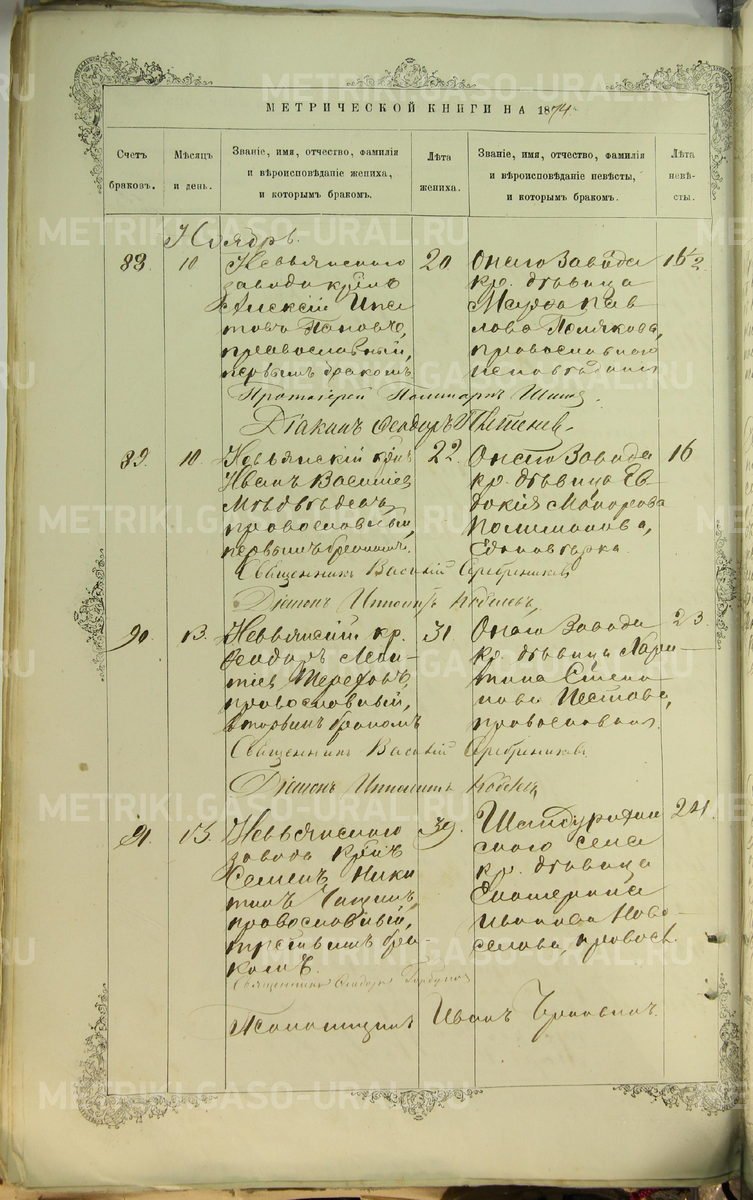 МЕТРИЧЕСКОЙ КНИГИ НА 1874
Счетъ браковъ.
Мѣсяцъ и день.
Званіе, имя, отчество, фамилія
и вѣроисповѣданіе жениха,
и которымъ бракомъ.
Лѣта жениха.
Званіе, имя, отчество, фамилія
и вѣроисповѣданіе невѣсты,
и которымъ бракомъ.
Лѣта невѣсты.
Ноябрь.
88. 10
Невьянского
завода крѣнъ
Алексій Ипа
товъ Поповъ,
православный,
первымъ бракомъ
20
Онаго Завода
кр. дѣвица
Марѳа Пав
лова Полякова,
православного
исповѣданія
16½
Протоіерей
Діаконъ Ѳеодоръ
89. 10.
Невьянскій крнъ
Иванъ Василіев
Мѣдвѣдевъ,
православный,
первымъ бракомъ.
22.
Онаго Завода
кр. дѣвица Ев
докія Макарова
Полишкова,
Единовѣрка
16
Священникъ Василій Серебрениковъ
Діаконъ Ипполитъ Кобелевъ,
90. 13.
Невьянскій кр.
Ѳеодоръ Леон
тіев Тереховъ,
православный,
вторымъ бракомъ
31.
Онаго Завода
кр. дѣвица Хари
тина Степа
нова Пестова,
православная.
23.
Священникъ Василій Серебрениковъ
Діаконъ Ипполитъ Кобелев
91. 13.
Невьянского
завода крѣнъ
Семенъ Ники
тинъ Чащинъ,
православный,
третьимъ бра-
комъ.
39.
Шайдурихин
ского села
кр. дѣвица
Екатерина
Иванова Ново-
селова, правосл.
24.
Священникъ Ѳеодоръ Горбунов
Псаломщикъ Иванъ
METRIKI.GASO-URAL.RU